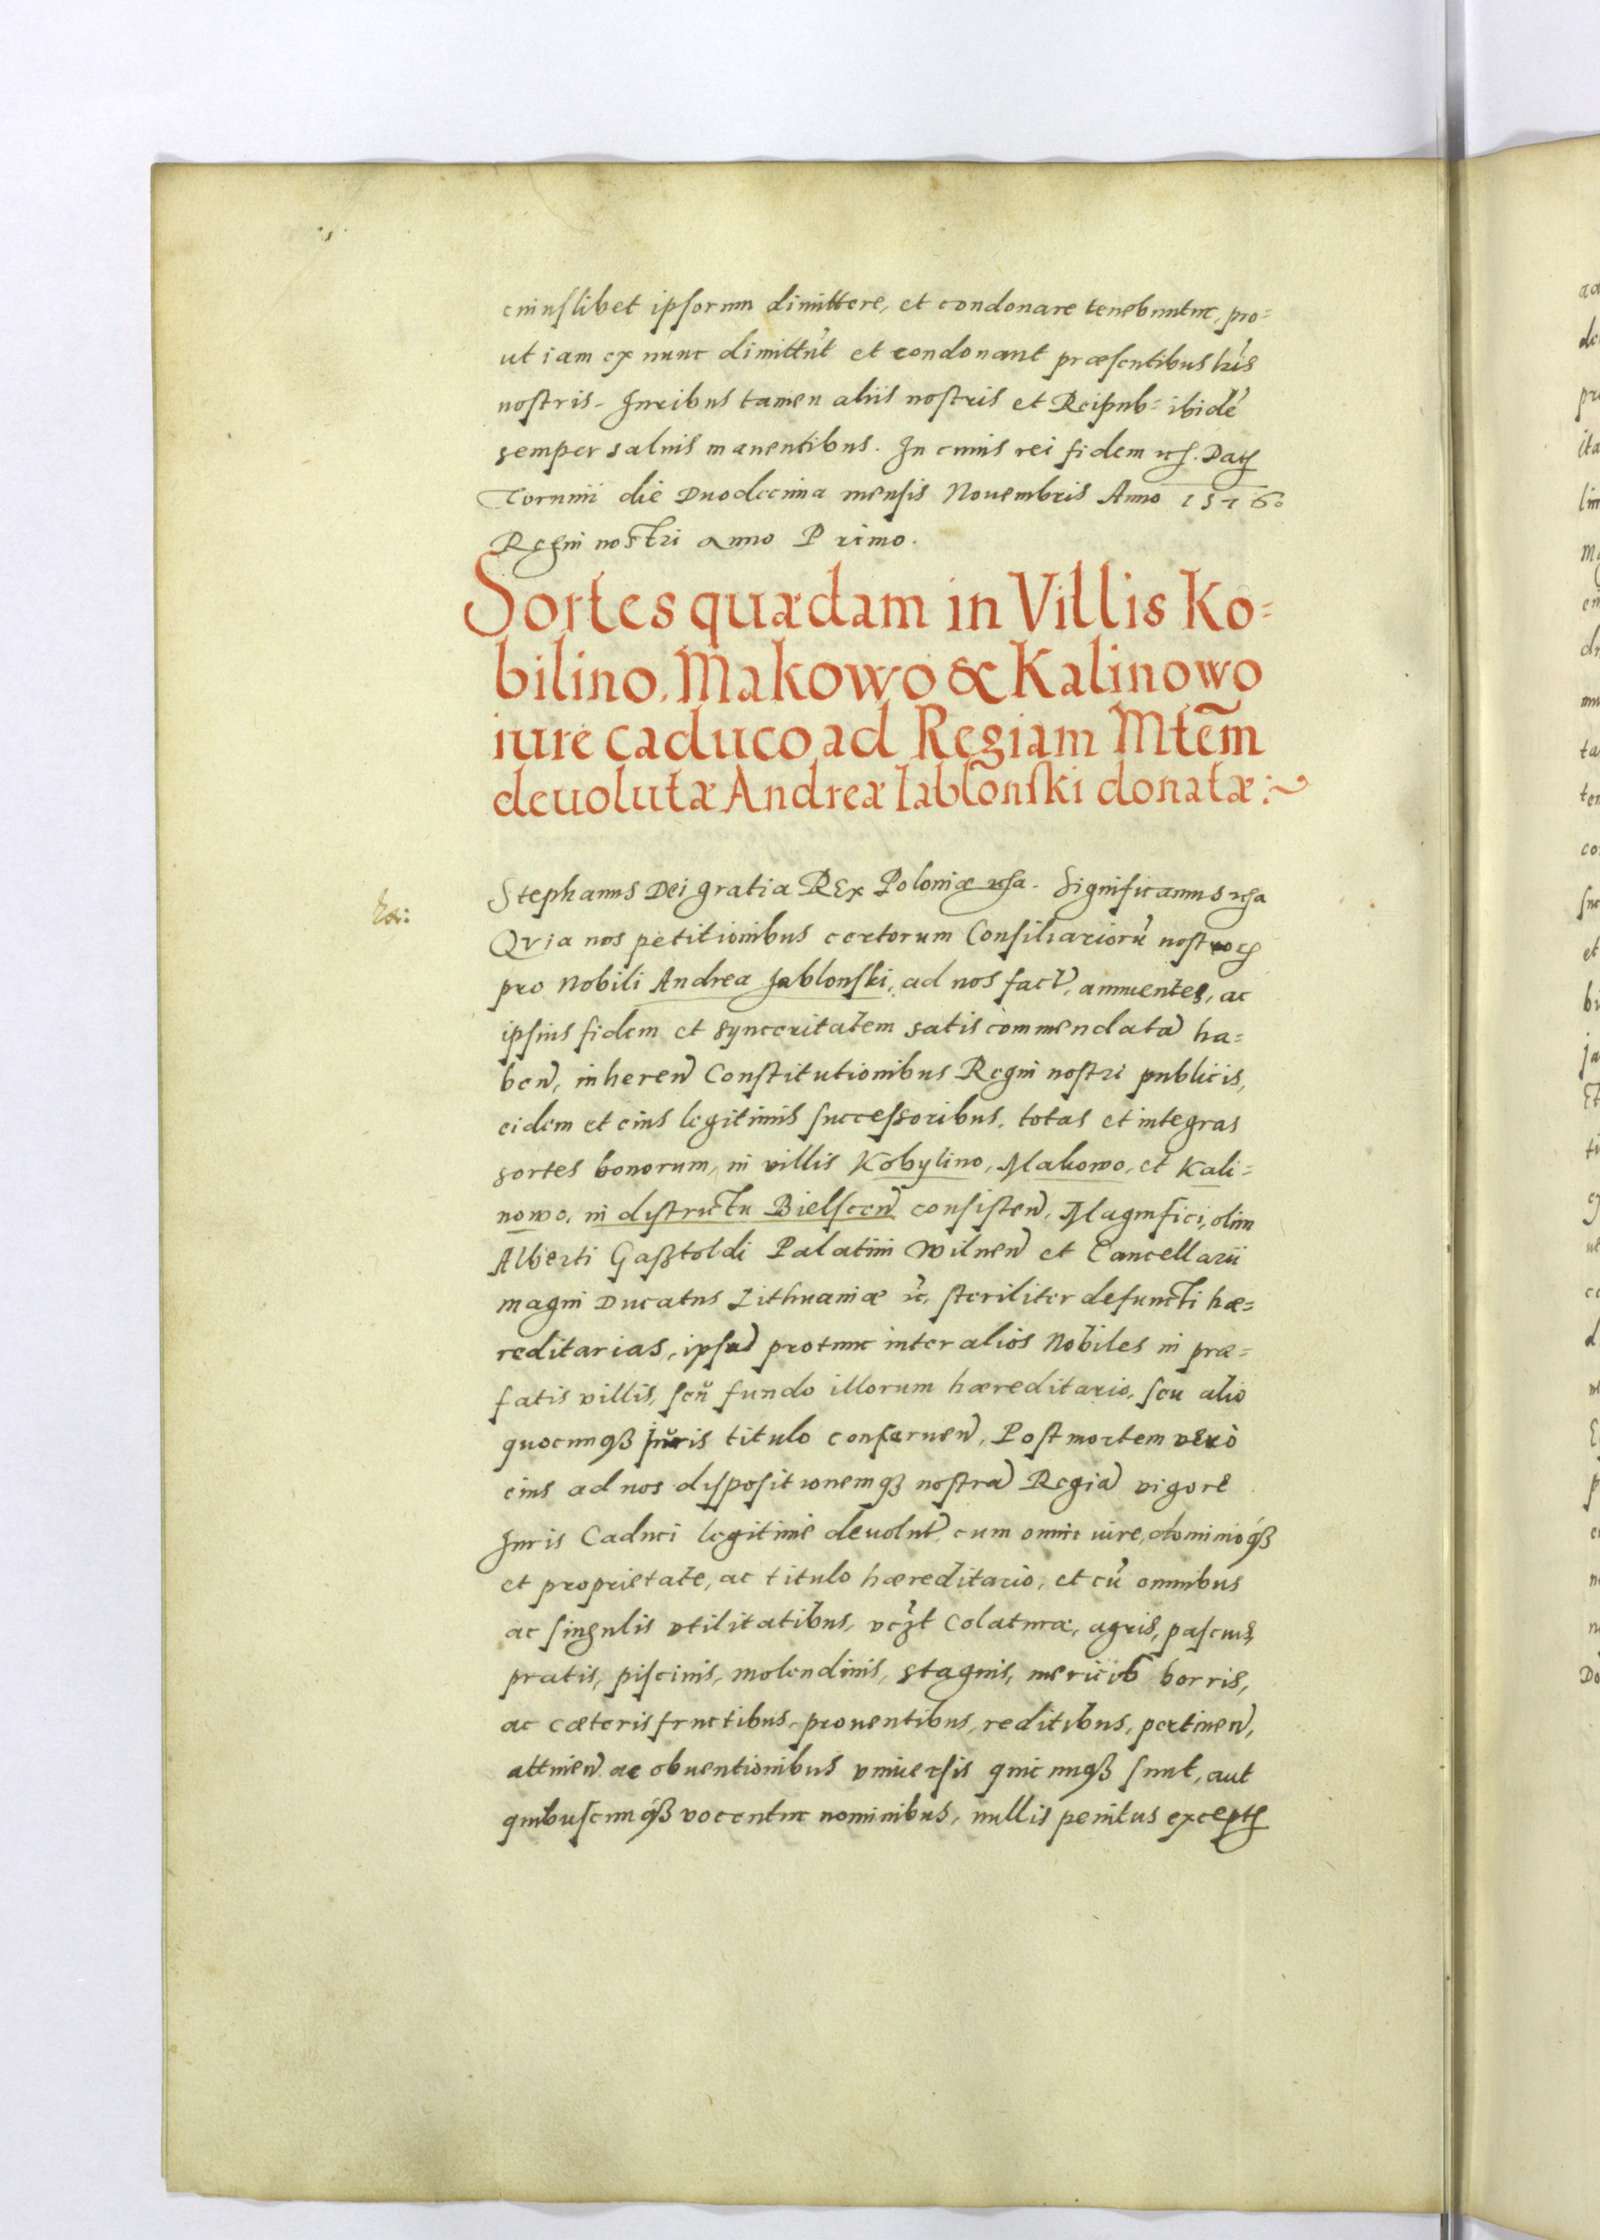 cuiuslibet ipsorum dimittere, et condonare tenebuntur, pro=
ut iam ex nunc dimittūt et condonant præsentibus lr̃is
nostris. Iuribus tamen aliis nostris et Reipub= ibidē
semper saluis manentibus. In cuius rei fidem etc. Dat
Torunii die Duodecima mensis Nouembris Anno 1576.
Regni nostri anno Primo.
Sortes quædam in Villis Ko=
bilino, Makowo & Kalinowo
iure caduco ad Regiam Mtem̃
deuolutæ Andreæ Iablonski donatæ:~
Stephanus Dei gratia REx Poloniæ etca. Significamus etca
Qvia nos petitionibus certorum Consiliariorū nostroꝝ
pro Nobili Andrea Jablonski, ad nos fact̃, annuentes, ac
ipsius fidem et synceritatem satis commendatā ha=
ben̄, inheren̄ Constitutionibus Regni nostri publicis,
eidem et eius legitimis successoribus, totas et integras
sortes bonorum, in villis Kobylino, Makowo, et Kali=
nowo, in districtu Bielscen̄ consisten̄, Magnifici, olim
Alberti Gasztoldi Palatini Wilnen̄ et Cancellarii
magni Ducatus Lithuaniæ etc. steriliter defuncti hæ=
reditarias, ipsūd protunc inter alios Nobiles in præ=
fatis villis, seū fundo illorum hæreditario, seu alio
quocunqꝫ juris titulo conseruen̄, Post mortem verò
eius ad nos dispositionemqꝫ nostrā Regiā vigore
Iuris Caduci legitime deuolut̃, cum omni iure, dominioqꝫ
et proprietate, ac titulo hæreditario, et cū omnibus
ac singulis vtilitatibus, vꝫt Colaturæ, agris, pascuis,
pratis, piscinis, molendinis, stagnis, mericib borris,
ac cæteris fructibus, prouentibus, reditibus, pertinen̄,
attinen̄ ac obuentionibus vniuersis quicunqꝫ sunt, aut
quibuscunqꝫ vocentur nominibus, nullis penitus except